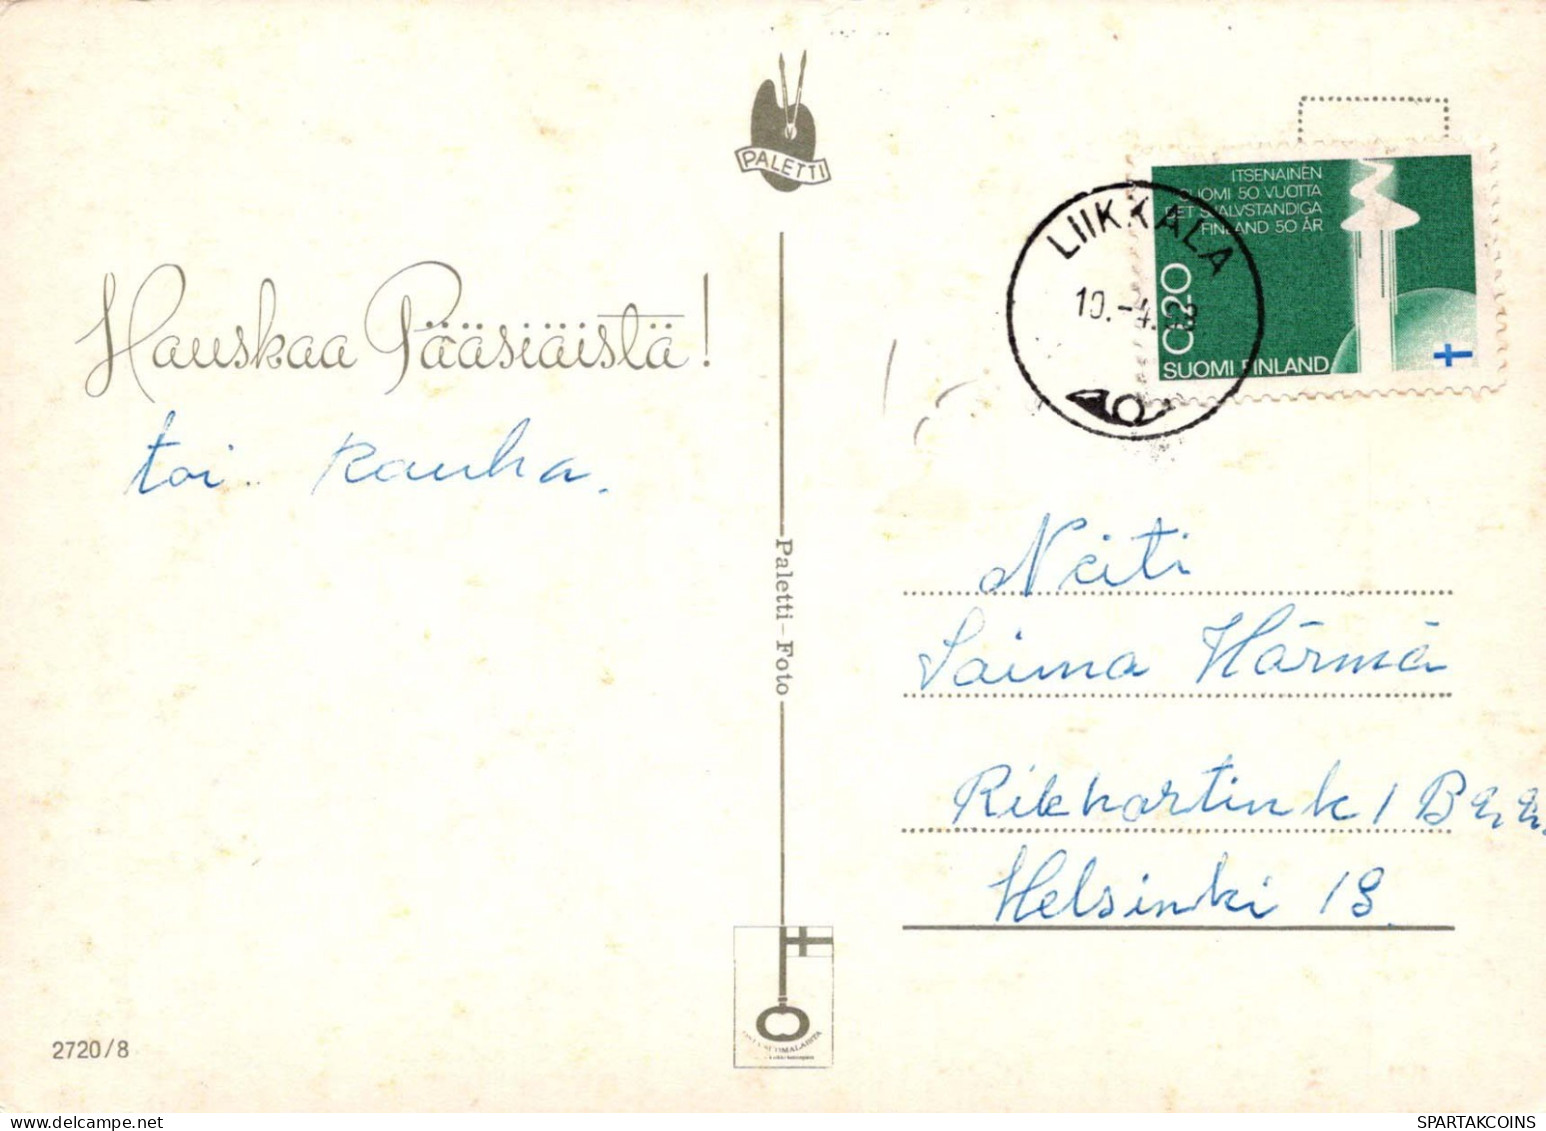 PALETTI
ITSENÄINEN
SUOMI 50 VUOTTA
DET SJÄLVSTÄNDIGA
FINLAND 50 ÅR
0,20
SUOMI FINLAND
LIIKKALA
10.-4.68
Hauskaa Pääsiäistä!
toi. Rauha.
Paletti-Foto
Neiti
Saima Härmä
Rikhartink 1 B
Helsinki 18
OSTA SUOMALAISTA
2720/8
SPARTAKCOINS